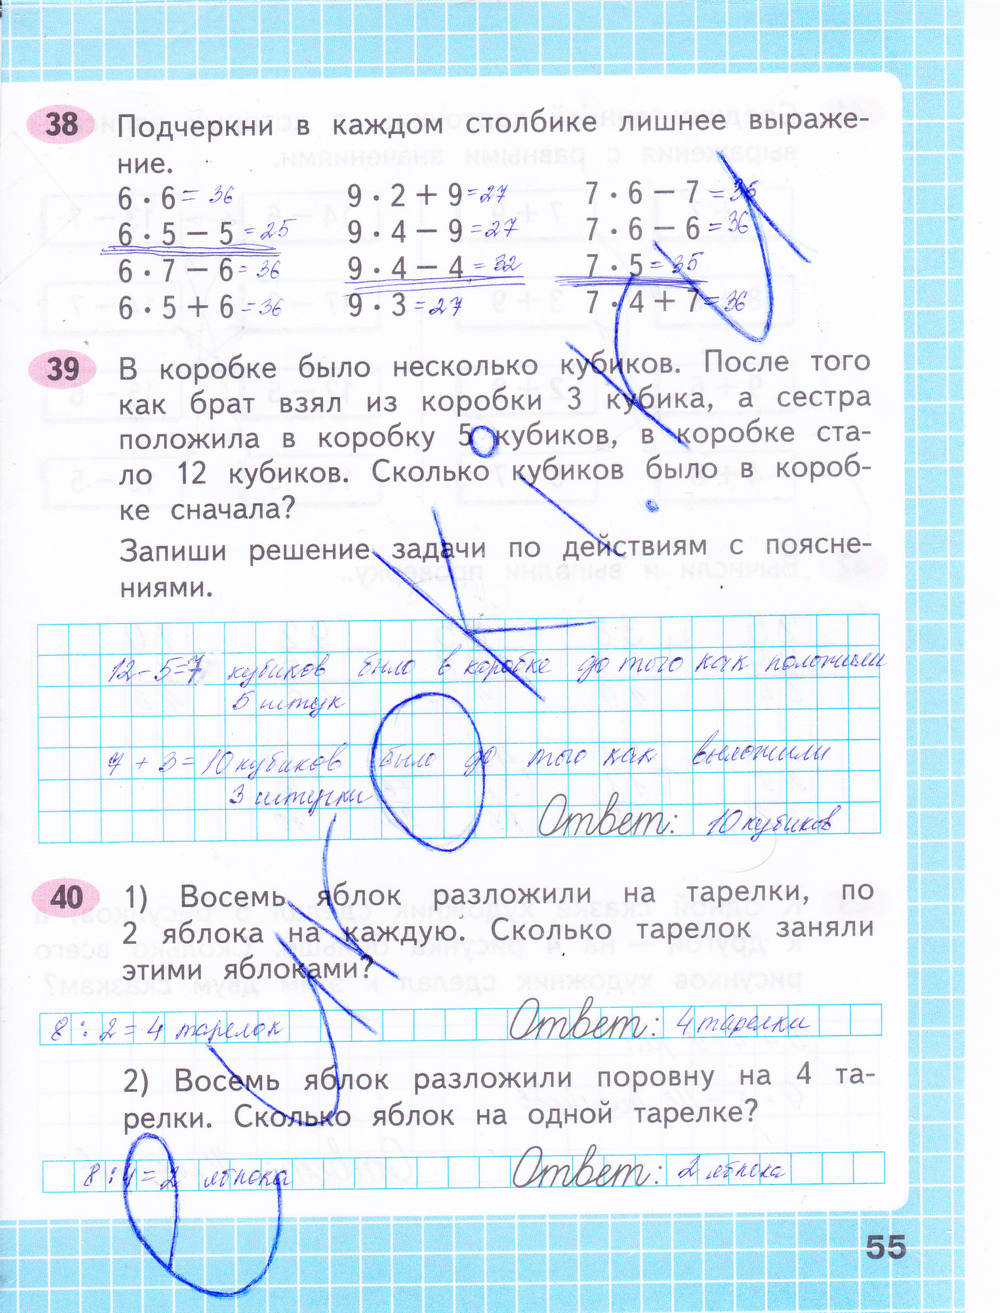 38 Подчеркни в каждом столбике лишнее выраже-
ние.
6 · 6 = 36 9 · 2 + 9 = 27 7 · 6 − 7 = 35
6 · 5 − 5 = 25 9 · 4 − 9 = 27 7 · 6 − 6 = 36
6 · 7 − 6 = 36 9 · 4 − 4 = 32 7 · 5 = 35
6 · 5 + 6 = 36 9 · 3 = 27 7 · 4 + 7 = 36
39 В коробке было несколько кубиков. После того
как брат взял из коробки 3 кубика, а сестра
положила в коробку 5 кубиков, в коробке ста-
ло 12 кубиков. Сколько кубиков было в короб-
ке сначала?
Запиши решение задачи по действиям с поясне-
ниями.
12 − 5 = 7 кубиков было в коробке до того как положили
5 штук
7 + 3 = 10 кубиков было до того как выложили
3 штучки
Ответ: 10 кубиков
40 1) Восемь яблок разложили на тарелки, по
2 яблока на каждую. Сколько тарелок заняли
этими яблоками?
8 : 2 = 4 тарелок Ответ: 4 тарелки
2) Восемь яблок разложили поровну на 4 та-
релки. Сколько яблок на одной тарелке?
8 : 4 = 2 яблока Ответ: 2 яблока
55